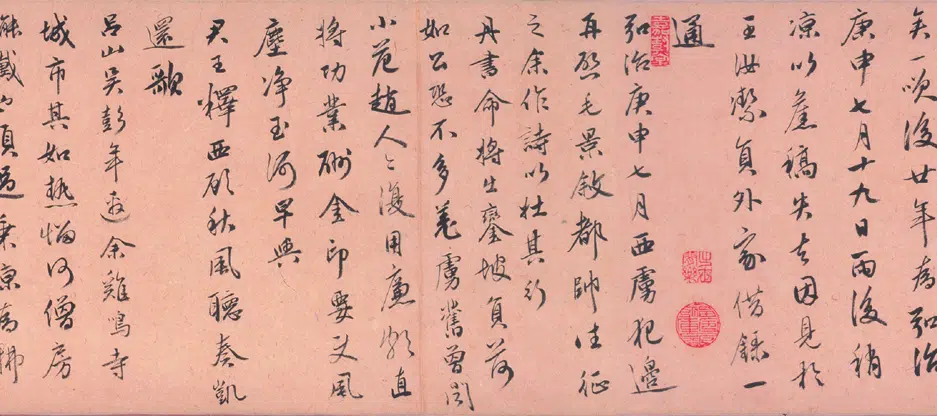 矣一嘆後廿年為弘治
庚申七月十九日雨後稍
涼以舊稿失去因見於
王汝潔員外家借錄一
通
弘治庚申七月西虜犯邊
再起毛景敘都帥往征
之余作詩以壯其行
丹書命將出鑾坡負荷
如公恐不多羌虜舊曾聞
小范趙人今復用廉頗直
將功業酬金印要使風
塵淨玉河早與
君王釋西顧秋風聽奏凱
還歌
呂山吳彭年邀余雞鳴寺
城市其如熱惱何僧房
須過乘涼為掃